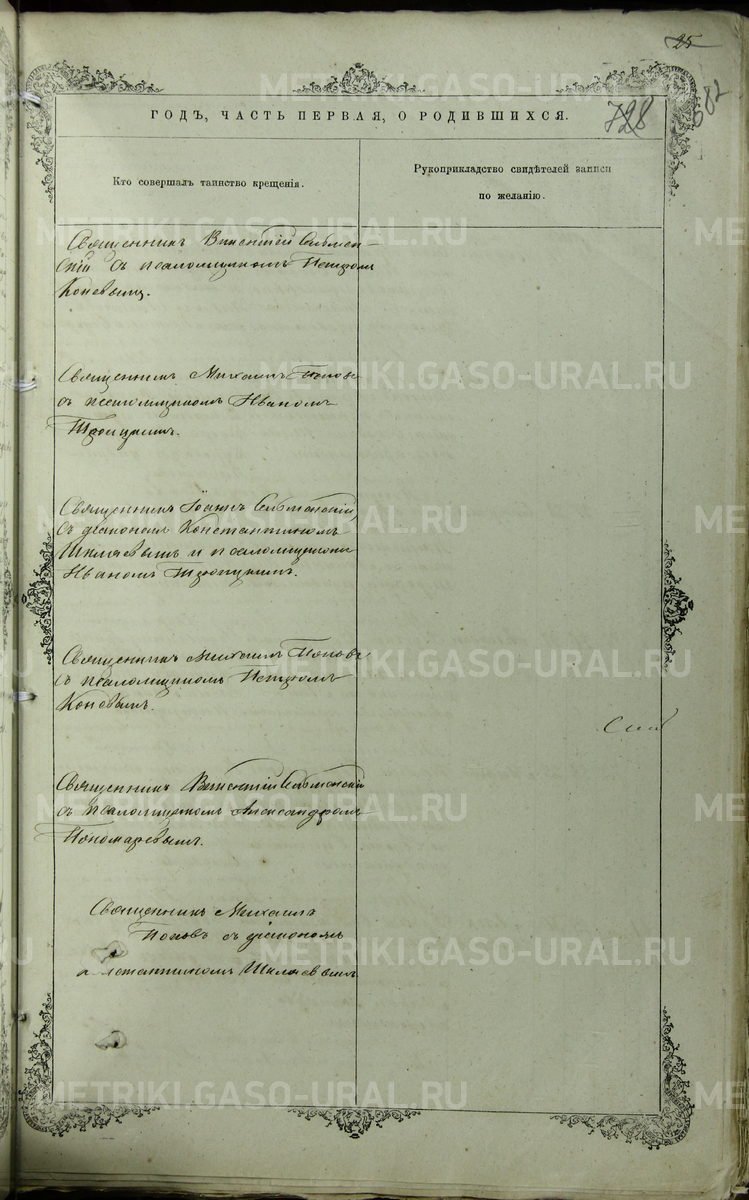 25
582
728
ГОДЪ, ЧАСТЬ ПЕРВАЯ, О РОДИВШИХСЯ.
Кто совершалъ таинство крещенія.
Рукоприкладство свидѣтелей записи
по желанію.
Священникъ Викентій Сельмен-
скій съ псаломщикомъ Петромъ
Коневымъ.
Священникъ Михаилъ Поповъ
съ псаломщикомъ Иваномъ
Троицкимъ.
Священникъ Іоаннъ
съ діакономъ Константиномъ
Шиляевымъ и псаломщикомъ
Иваномъ Троицкимъ.
Священникъ Михаилъ Поповъ
съ псаломщикомъ Петромъ
Коневымъ.
Священникъ Викентій Сельменскій
съ псаломщикомъ Александромъ
Пономаревымъ.
Священникъ Михаилъ
Поповъ съ діакономъ
Шиляевымъ
METRIKI.GASO-URAL.RU